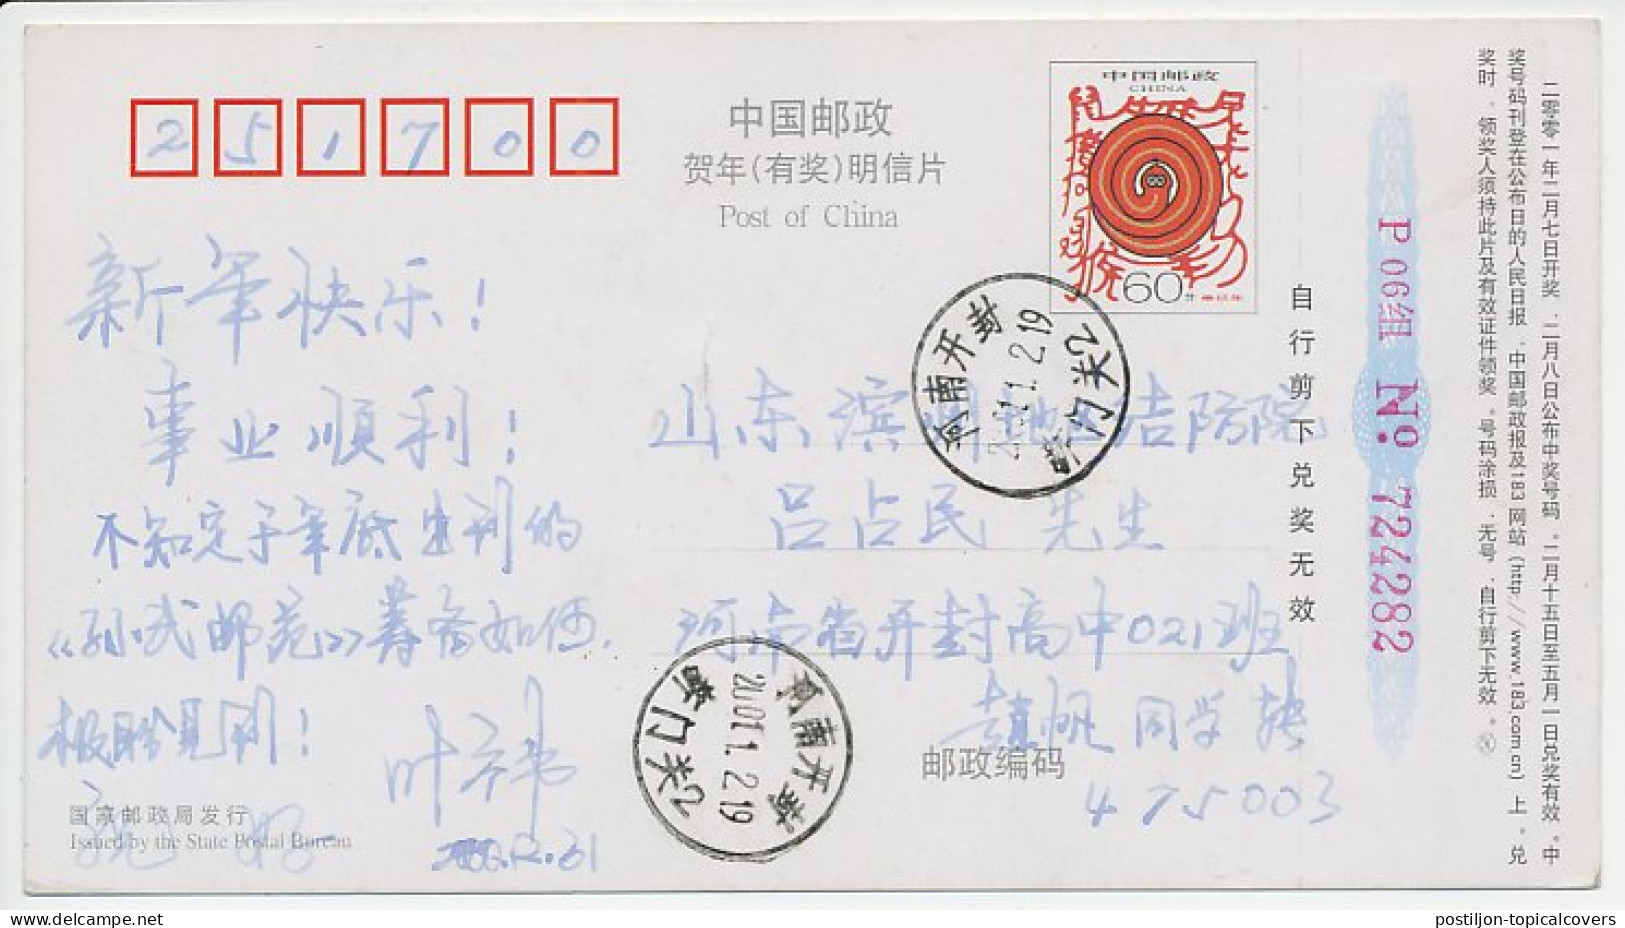 251700
中国邮政
贺年(有奖)明信片
Post of China
中国邮政
CHINA
60分
新年快乐！
事业顺利！
不知定于年底出刊的
《孙武邮苑》筹备如何，
极盼见刊！
叶祎
2000.12.31
国家邮政局发行
Issued by the State Postal Bureau
山东滨州地区结防院
吕占民 先生
河南省开封高中021班
赵帆同学转
邮政编码
475003
河南开封
2001.1.2.19
乙关门
河南开封
2001.1.2.19
乙关门
自行剪下兑奖无效
P06组 No: 724282
二零零一年二月七日开奖．二月八日公布中奖号码。二月十五日至五月一日兑奖有效。中
奖号码刊登在公布日的人民日报．中国邮政报及183网站(http://www.183.com.cn)上。兑
奖时．领奖人须持此片及有效证件领奖。号码涂损．无号．自行剪下无效。
postiljon.delcampe.net
postiljon-topicalcovers